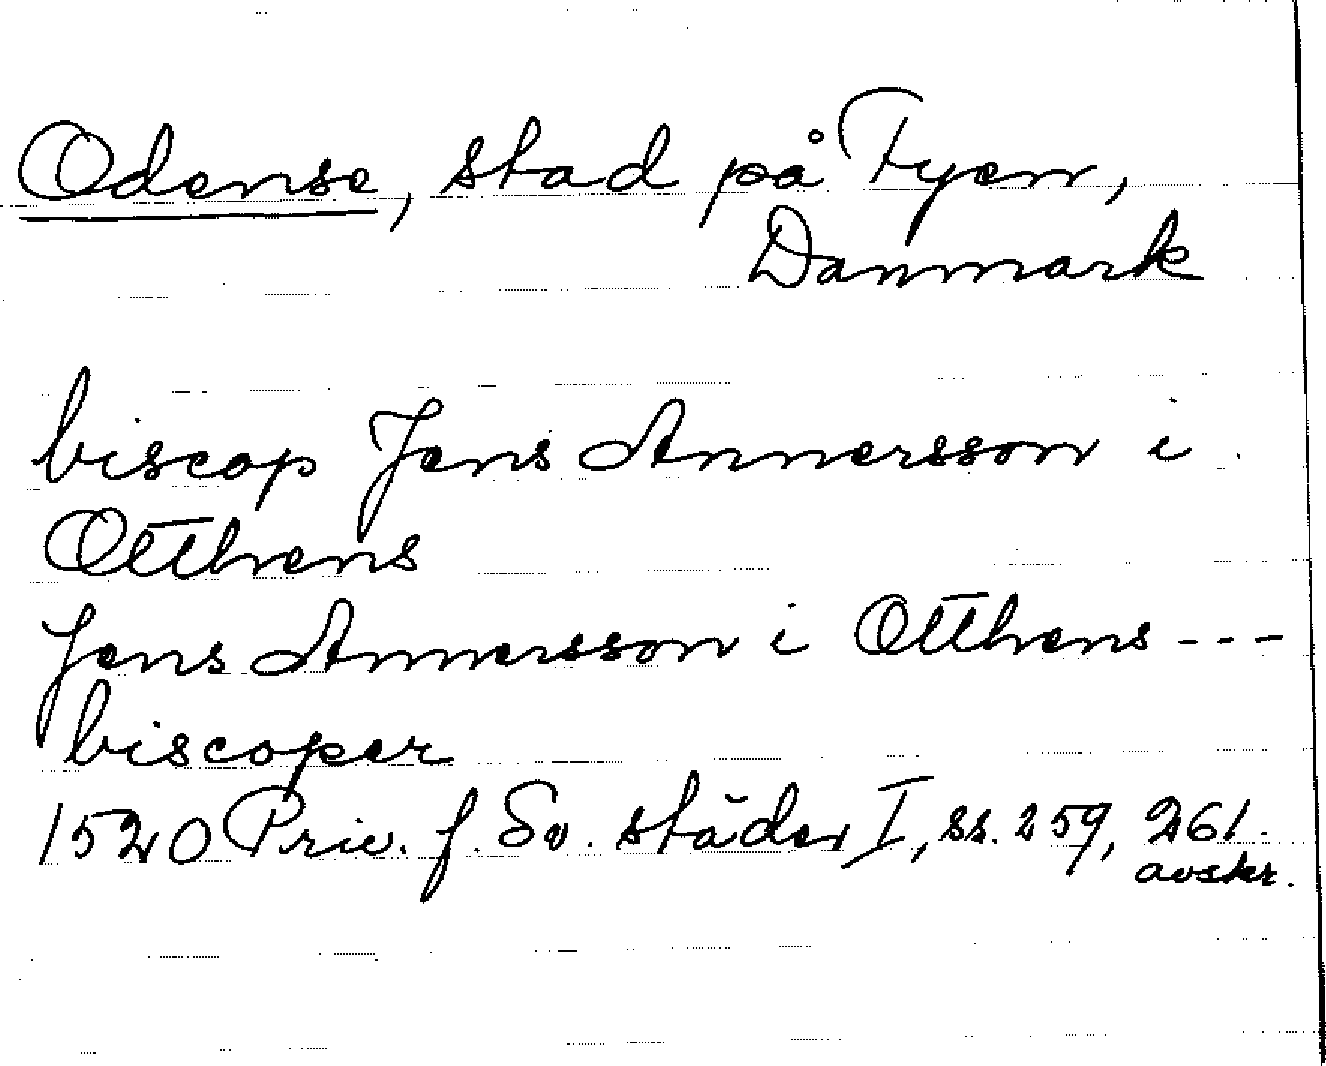 Odense, stad på Fyen,
Danmark
biscop Jens Annersson i
Otthens
Jens Annersson i Otthens ---
biscoper
1520 Priv. f. Sv. städer I, ss. 259, 261.
avskr.